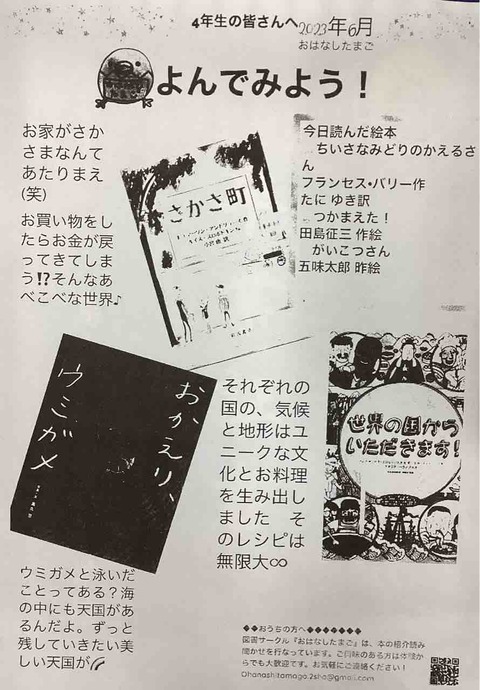 4年生の皆さんへ
2023年6月
おはなしたまご
よんでみよう！
お家がさか
さまなんて
あたりまえ
(笑)
お買い物をし
たらお金が戻
ってきてしま
う!?そんなあ
べこべな世界♪
さかさ町
小宮由 訳
今日読んだ絵本
ちいさなみどりのかえるさ
ん
フランセス・バリー作
たに ゆき訳
つかまえた！
田島征三 作絵
がいこつさん
五味太郎 昨絵
おかえり、
ウミガメ
それぞれの
国の、気候
と地形はユ
ニークな文
化とお料理
を生み出し
ました　そ
のレシピは
無限大∞
世界の国から
いただきます！
ウミガメと泳いだ
ことってある？海
の中にも天国があ
るんだよ。ずっと
残していきたい美
しい天国が
◆◆おうちの方へ◆◆◆◆◆◆◆
図書サークル『おはなしたまご』は、本の紹介読み
聞かせを行なっています。ご興味のある方は体験か
らでも大歓迎です。お気軽にご連絡ください！
Ohanashitamago.2sho@gmail.com